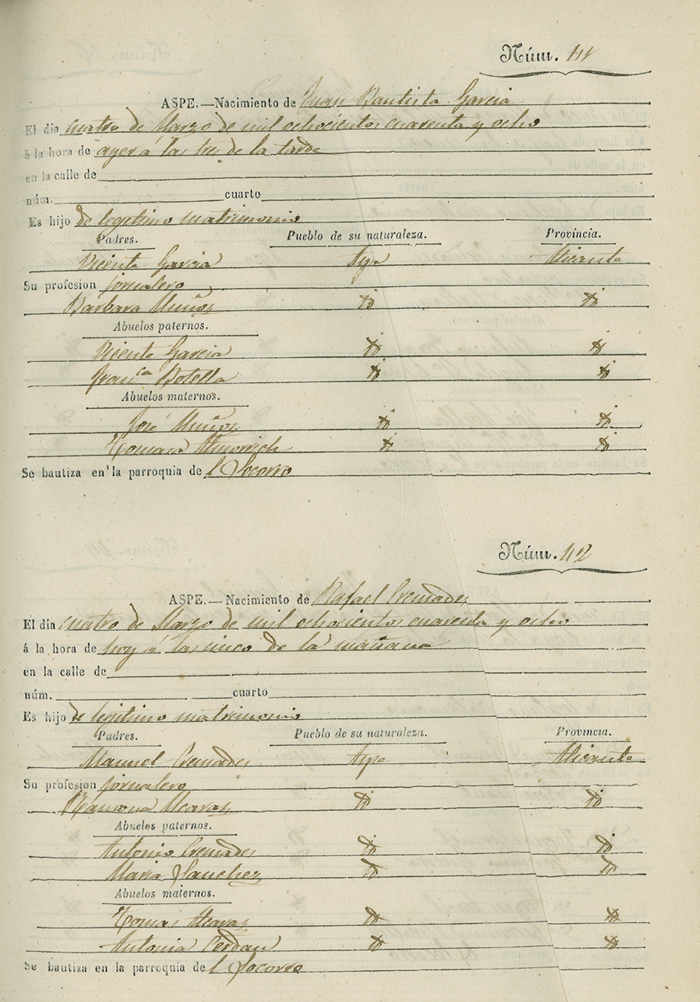 Núm. 41
ASPE.—Nacimiento de Juan Bautista Garcia
El dia cuatro de Marzo de mil ochocientos cuarenta y ocho
á la hora de ayer á las tres de la tarde
en la calle de
núm. cuarto
Es hijo de legitimo matrimonio
Padres. Pueblo de su naturaleza. Provincia.
Vicente Garcia Aspe Alicante
Su profesion jornalero
Bárbara Muñoz id id
Abuelos paternos.
Vicente Garcia id id
Franca Botella id id
Abuelos maternos.
José Muñoz id id
Tomasa Almorich id id
Se bautiza en la parroquia de l Socorro
Núm. 42
ASPE.—Nacimiento de Rafael Cremades
El dia cuatro de Marzo de mil ochocientos cuarenta y ocho
á la hora de hoy a las cinco de la mañana
en la calle de
núm. cuarto
Es hijo de legitimo matrimonio
Padres. Pueblo de su naturaleza. Provincia.
Manuel Cremades Aspe Alicante
Su profesion jornalero
Alcaraz id id
Abuelos paternos.
Antonio Cremades id id
Maria Sanchez id id
Abuelos maternos.
Tomas Alcaraz id id
Antonia Cerdan id id
Se bautiza en la parroquia de l Socorro